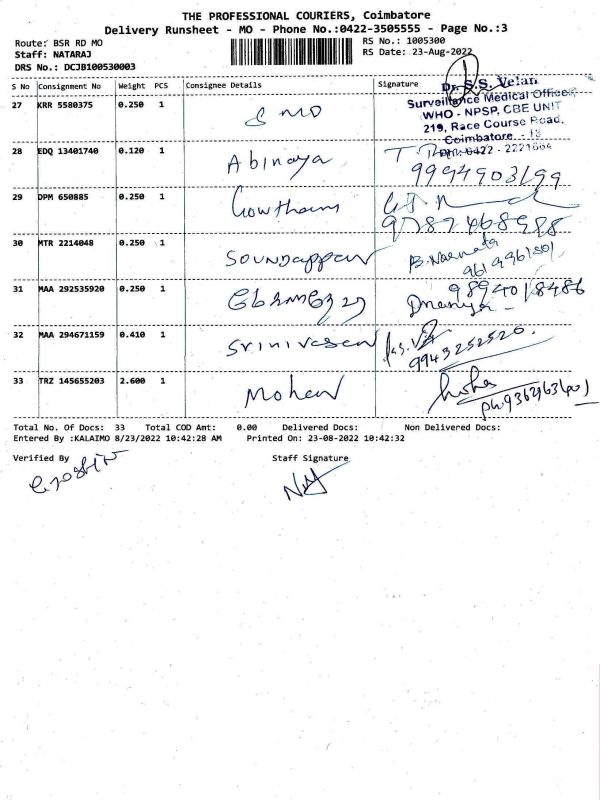 THE PROFESSIONAL COURIERS, Coimbatore
Delivery Runsheet - MO - Phone No.:0422-3505555 - Page No.:3
Route: BSR RD MO
RS No.: 1005300
Staff: NATARAJ
RS Date: 23-Aug-2022
DRS No.: DCJB100530003
S No Consignment No Weight PCS Consignee Details Signature
Dr. S.S. Velan
Surveillance Medical Officer
WHO - NPSP, CBE UNIT
219, Race Course Road,
Coimbatore - 18
Ph: 0422 - 2221664
27 KRR 5580375 0.250 1 SMO
28 EDQ 13401740 0.120 1 Abinaya
9994903199
29 DPM 650885 0.250 1 Gowtham
9787468988
30 MTR 2214048 0.250 1 Soundappan B. Namata
9619361801
31 MAA 292535920 0.250 1
9894018486
32 MAA 294671159 0.410 1 Srinivasan
9943252526.
33 TRZ 145655203 2.600 1 Mohan
Total No. Of Docs: 33 Total COD Amt: 0.00 Delivered Docs: Non Delivered Docs:
Entered By :KALAIMO 8/23/2022 10:42:28 AM Printed On: 23-08-2022 10:42:32
Verified By Staff Signature